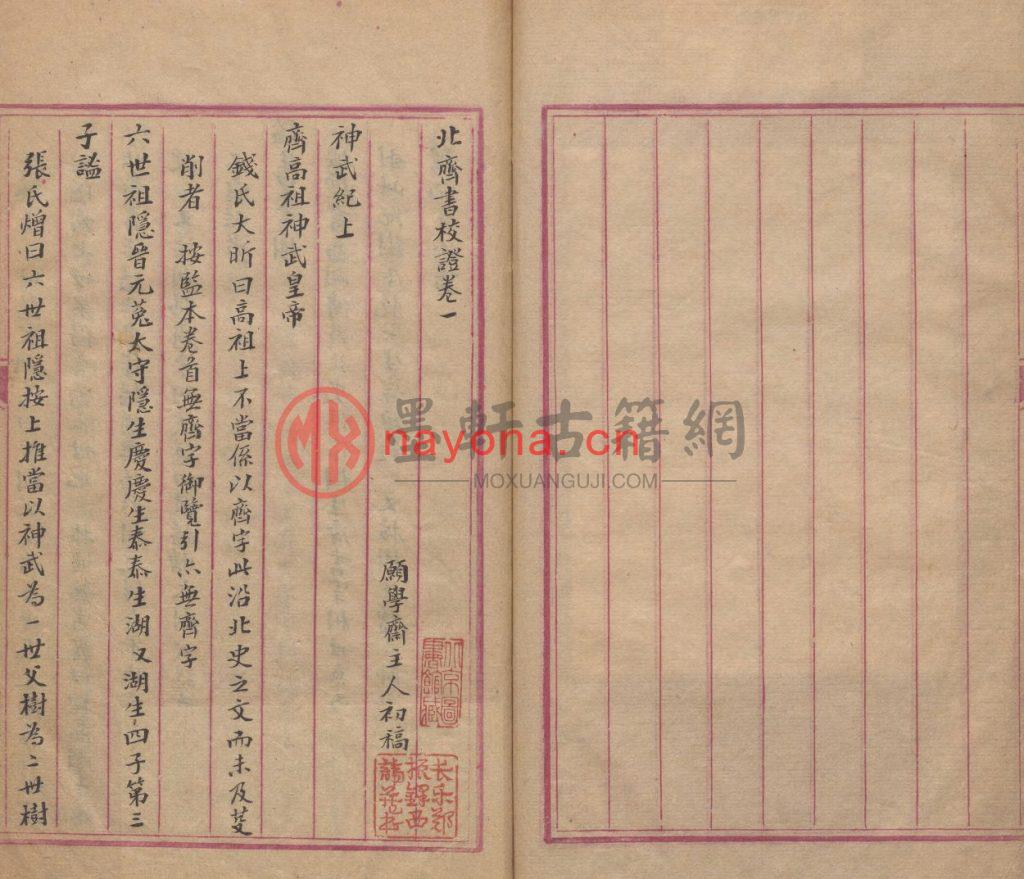 北齊書校證卷一
願學齋主人初稿
神武紀上
齊高祖神武皇帝
錢氏大昕曰高祖上不當係以齊字此沿北史之文而未及芟
削者　按監本卷首無齊字御覽引亦無齊字
六世祖隱晉元菟太守隱生慶慶生泰泰生湖又湖生四子第三
子謐
張氏熷曰六世祖隱按上推當以神武為一世父樹為二世樹
北京圖
書館藏
长乐鄭
振鐸西
諦藏書
墨軒古籍網
nayona.cn
MOXUANGUJI.COM
MX